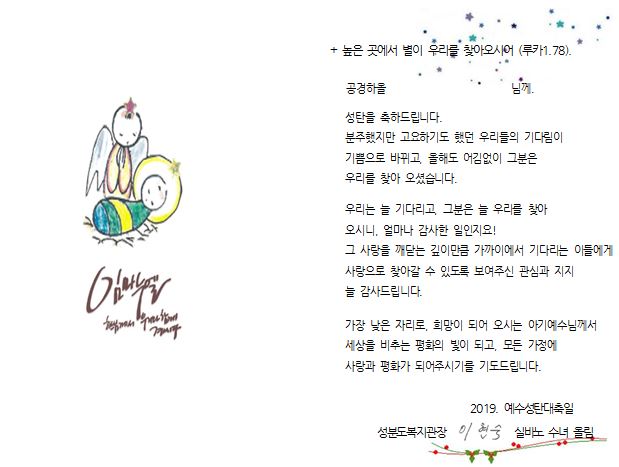 임마누엘
하느님께서 우리와 함께
계시다
+ 높은 곳에서 별이 우리를 찾아오시어 (루카1.78).
공경하올 님께.
성탄을 축하드립니다.
분주했지만 고요하기도 했던 우리들의 기다림이
기쁨으로 바뀌고, 올해도 어김없이 그분은
우리를 찾아 오셨습니다.
우리는 늘 기다리고, 그분은 늘 우리를 찾아
오시니, 얼마나 감사한 일인지요!
그 사랑을 깨닫는 깊이만큼 가까이에서 기다리는 이들에게
사랑으로 찾아갈 수 있도록 보여주신 관심과 지지
늘 감사드립니다.
가장 낮은 자리로, 희망이 되어 오시는 아기예수님께서
세상을 비추는 평화의 빛이 되고, 모든 가정에
사랑과 평화가 되어주시기를 기도드립니다.
2019. 예수성탄대축일
성분도복지관장 이현숙 실바노 수녀 올림